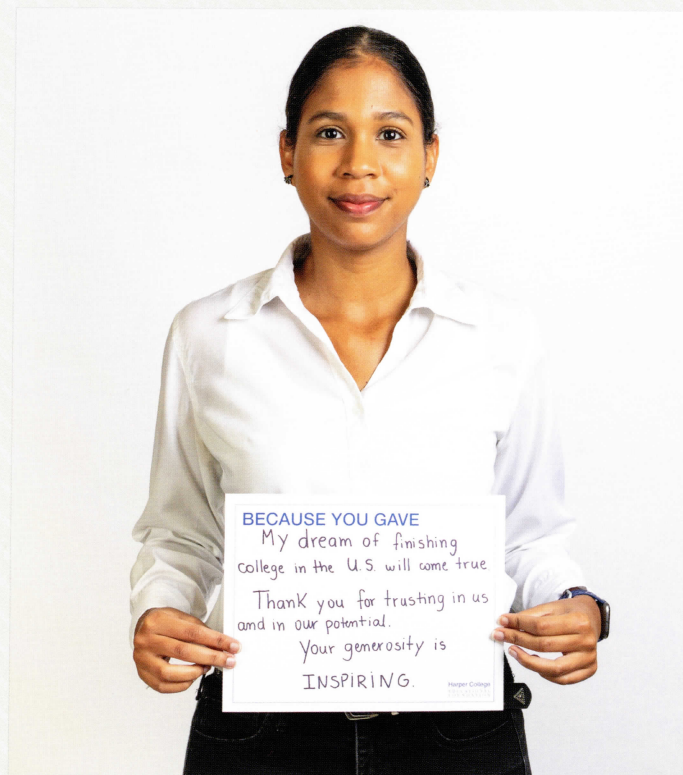 BECAUSE YOU GAVE
My dream of finishing
college in the U.S. will come true
Thank you for trusting in us
and in our potential.
Your generosity is
INSPIRING.
Harper College